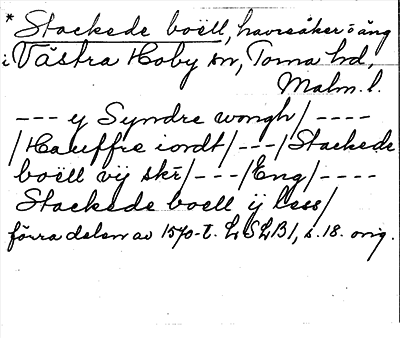 * Stackede boëll, havreåker o äng
i Västra Hoby sn, Torna hd,
Malm. l.
--- y Syndre wongh/----
/Hauffre iordt/---/Stackede
boëll vij skr/---/Eng/----
Stackede boell ij less/
förra delen av 1570-t. LSLB1, s. 18. orig.